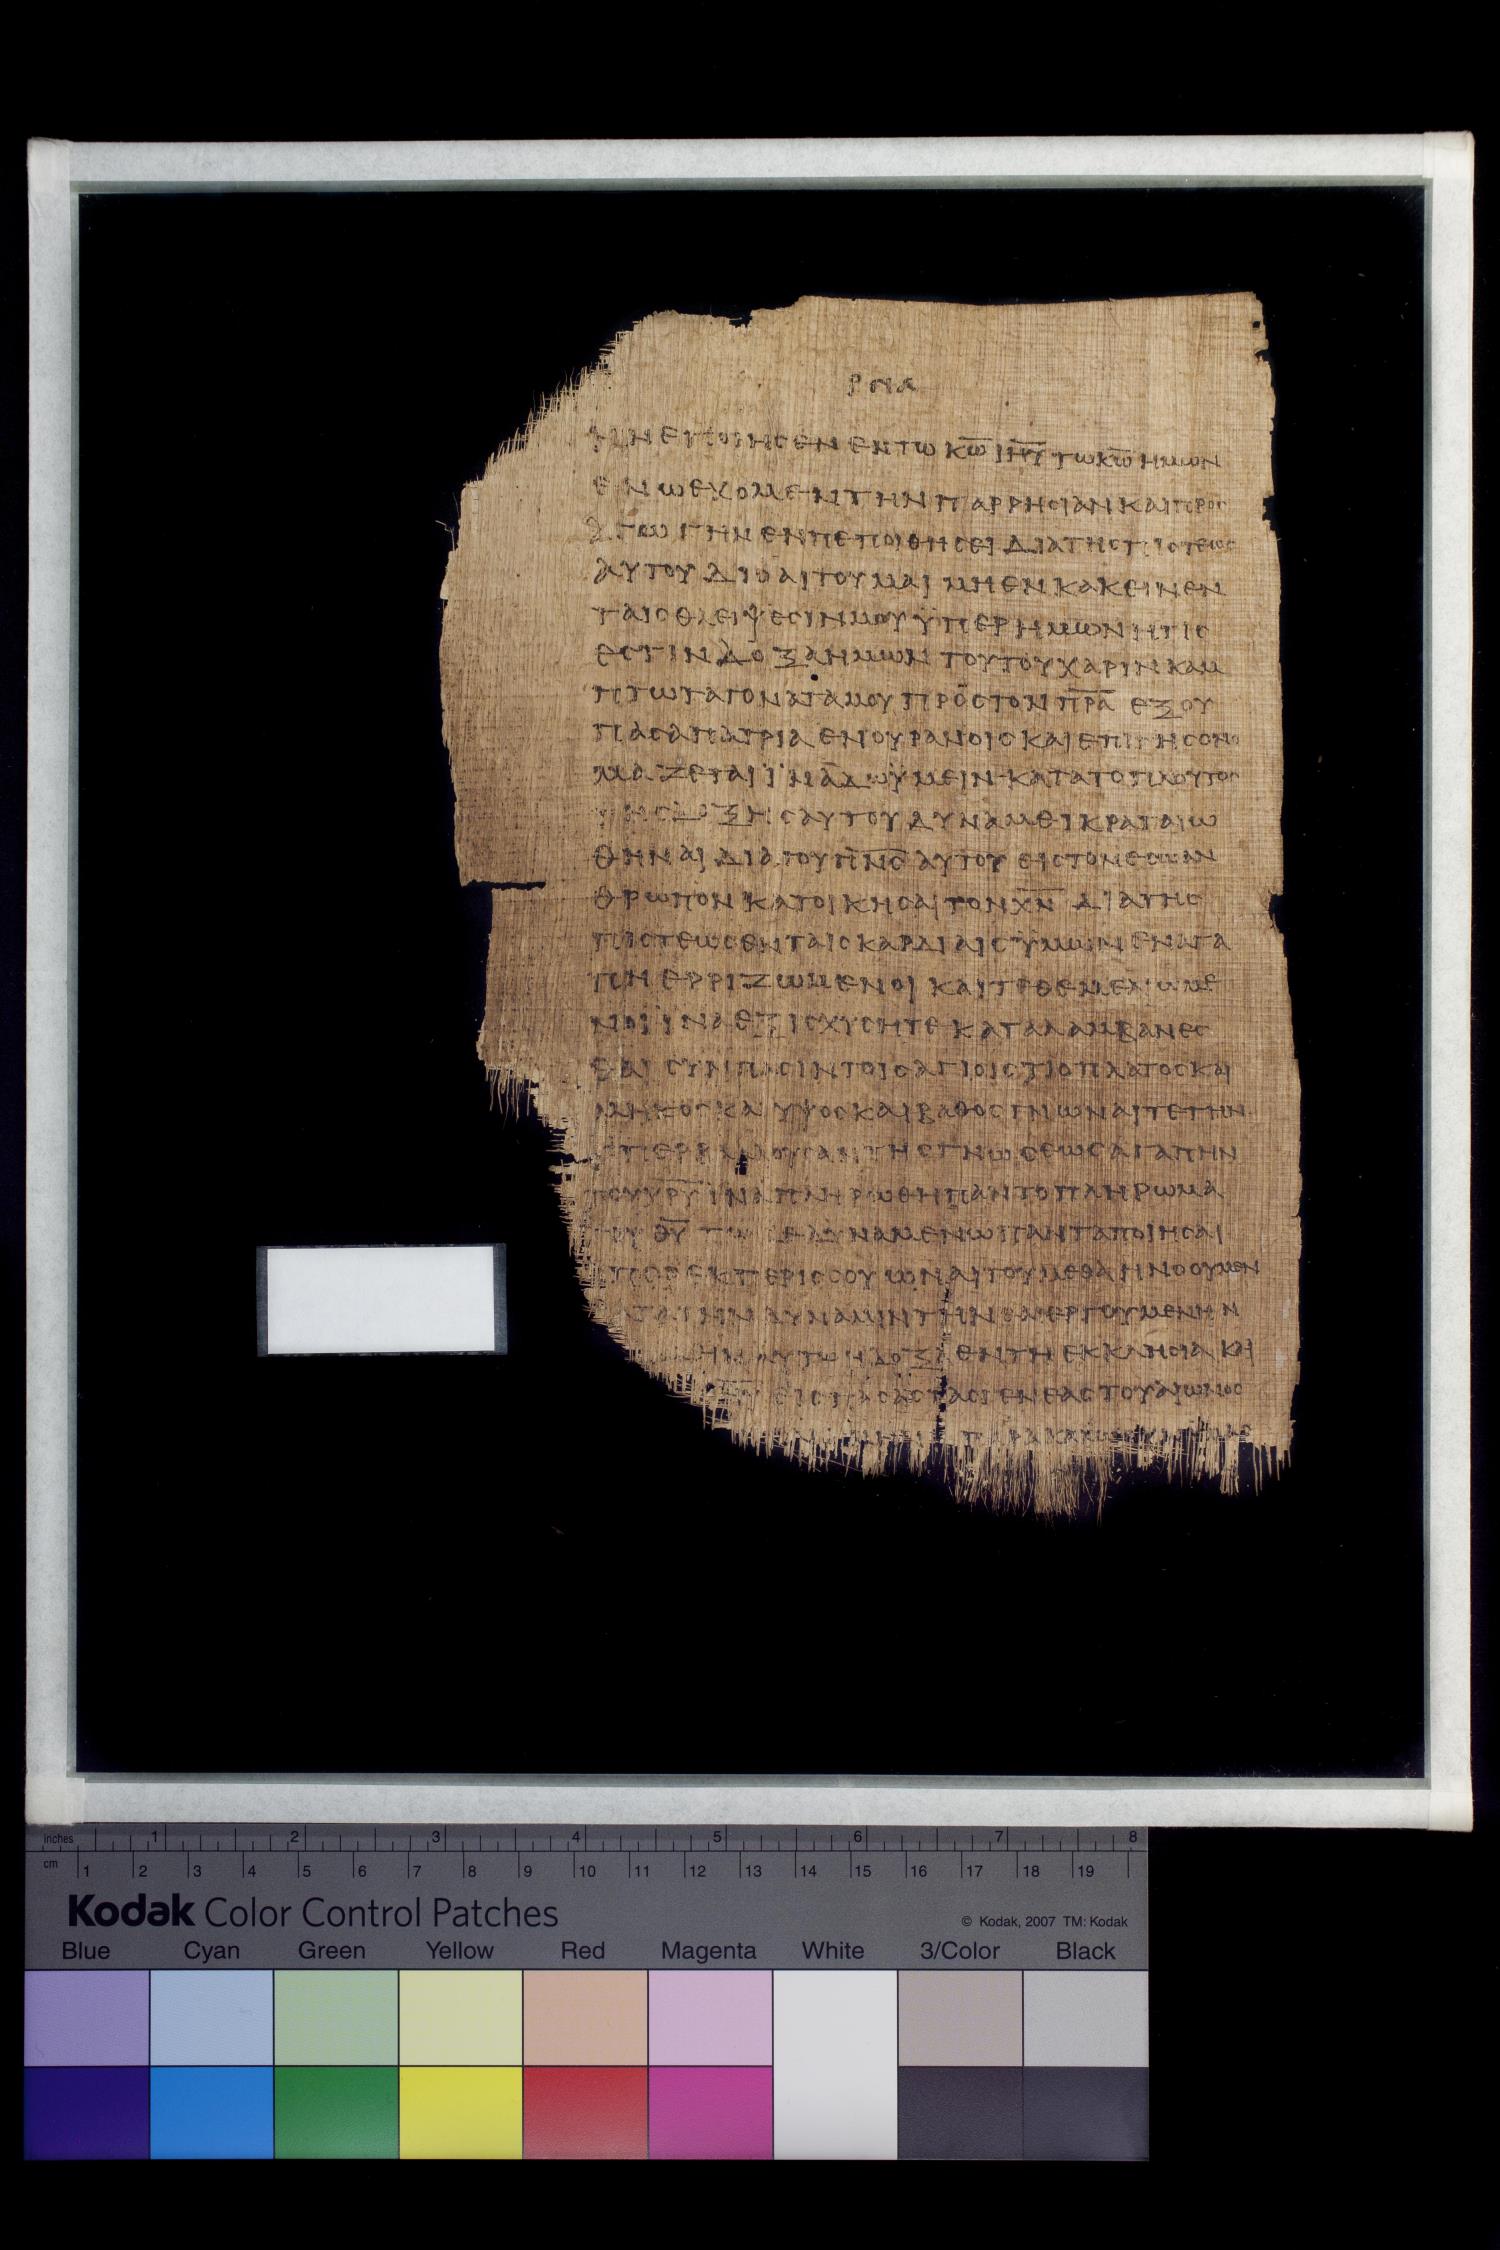 ΡΝΑ
ΗΝ ΕΠΟΙΗСΕΝ ΕΝ ΤΩ Κ̅Ω̅ ΙΗ̅Υ̅ ΤΩ Κ̅Ω̅ ΗΜΩΝ
ΕΝ Ω ΕΧΟΜΕΝ ΤΗΝ ΠΑΡΡΗСΙΑΝ ΚΑΙ ΠΡΟС
ΑΓΩΓΗΝ ΕΝ ΠΕΠΟΙΘΗСΕΙ ΔΙΑ ΤΗС ΠΙСΤΕΩС
ΑΥΤΟΥ ΔΙΟ ΑΙΤΟΥΜΑΙ ΜΗ ΕΝΚΑΚΕΙΝ ΕΝ
ΤΑΙС ΘΛΕΙΨΕСΙΝ ΜΟΥ ΫΠΕΡ ΗΜΩΝ ΗΤΙС
ΕСΤΙΝ ΔΟΞΑ ΗΜΩΝ ΤΟΥΤΟΥ ΧΑΡΙΝ ΚΑΜ
ΠΤΩ ΤΑ ΓΟΝΑΤΑ ΜΟΥ ΠΡΟС ΤΟΝ Π̅Ρ̅Α̅ ΕΞ ΟΥ
ΠΑСΑ ΠΑΤΡΙΑ ΕΝ ΟΥΡΑΝΟΙС ΚΑΙ ΕΠΙ ΓΗС ΟΝΟ
ΜΑΖΕΤΑΙ ΪΝΑ ΔΩ ΫΜΕΙΝ ΚΑΤΑ ΤΟ ΠΛΟΥΤΟС
ΤΗС ΔΟΞΗС ΑΥΤΟΥ ΔΥΝΑΜΕΙ ΚΡΑΤΑΙΩ
ΘΗΝΑΙ ΔΙΑ ΤΟΥ Π̅Ν̅С̅ ΑΥΤΟΥ ΕΙС ΤΟΝ ΕСΩ ΑΝ
ΘΡΩΠΟΝ ΚΑΤΟΙΚΗСΑΙ ΤΟΝ Χ̅Ν̅ ΔΙΑ ΤΗС
ΠΙСΤΕΩС ΕΝ ΤΑΙС ΚΑΡΔΙΑΙС ΫΜΩΝ ΕΝ ΑΓΑ
ΠΗ ΕΡΡΙΖΩΜΕΝΟΙ ΚΑΙ ΤΕΘΕΜΕΛΙΩΜΕ
ΝΟΙ ΪΝΑ ΕΞΙСΧΥСΗΤΕ ΚΑΤΑΛΑΜΒΑΝΕС
ΘΑΙ СΥΝ ΠΑСΙΝ ΤΟΙС ΑΓΙΟΙС ΤΙ ΤΟ ΠΛΑΤΟС ΚΑΙ
ΜΗΚΟС ΚΑΙ ΥΨΟС ΚΑΙ ΒΑΘΟС ΓΝΩΝΑΙ ΤΕ ΤΗΝ
ΥΠΕΡΒΑΛΛΟΥСΑΝ ΤΗС ΓΝΩСΕΩС ΑΓΑΠΗΝ
ΤΟΥ Χ̅Ρ̅Υ̅ ΙΝΑ ΠΛΗΡΩΘΗ ΠΑΝ ΤΟ ΠΛΗΡΩΜΑ
ΤΟΥ Θ̅Υ̅ ΤΩ ΔΕ ΔΥΝΑΜΕΝΩ ΠΑΝΤΑ ΠΟΙΗСΑΙ
ΥΠΕΡΕΚΠΕΡΙССΟΥ ΩΝ ΑΙΤΟΥΜΕΘΑ Η ΝΟΟΥΜΕΝ
ΚΑΤΑ ΤΗΝ ΔΥΝΑΜΙΝ ΤΗΝ ΕΝΕΡΓΟΥΜΕΝΗΝ
ΗΜΙΝ ΑΥΤΩ Η ΔΟΞΑ ΕΝ ΤΗ ΕΚΚΛΗСΙΑ ΚΑΙ
ΕΙС ΠΑСΑС ΤΑС ΓΕΝΕΑС ΤΟΥ ΑΙΩΝΟС
ΠΑΡΑΚΑΛΩ ΟΥΝ ΫΜΑС
inches 1 2 3 4 5 6 7 8
cm 1 2 3 4 5 6 7 8 9 10 11 12 13 14 15 16 17 18 19
Kodak Color Control Patches
© Kodak, 2007 TM: Kodak
Blue Cyan Green Yellow Red Magenta White 3/Color Black